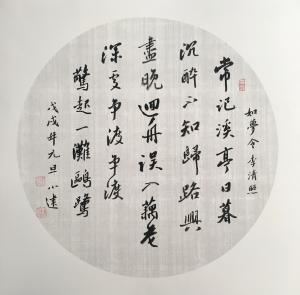 如夢令 李清照
常記溪亭日暮
沉醉不知歸路興
盡晚迴舟誤入藕花
深處爭渡爭渡
驚起一灘鷗鷺
戊戌年元旦小